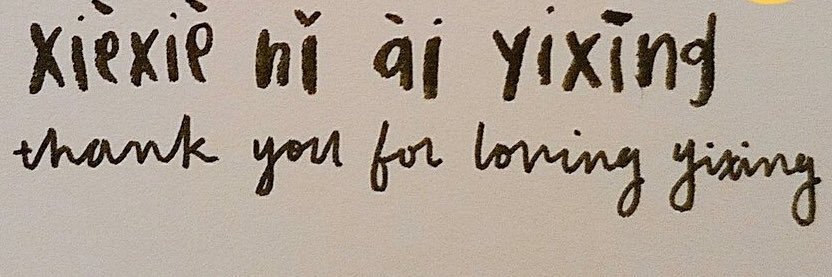 xièxiè nǐ ài yixīng
thank you for loving yixing